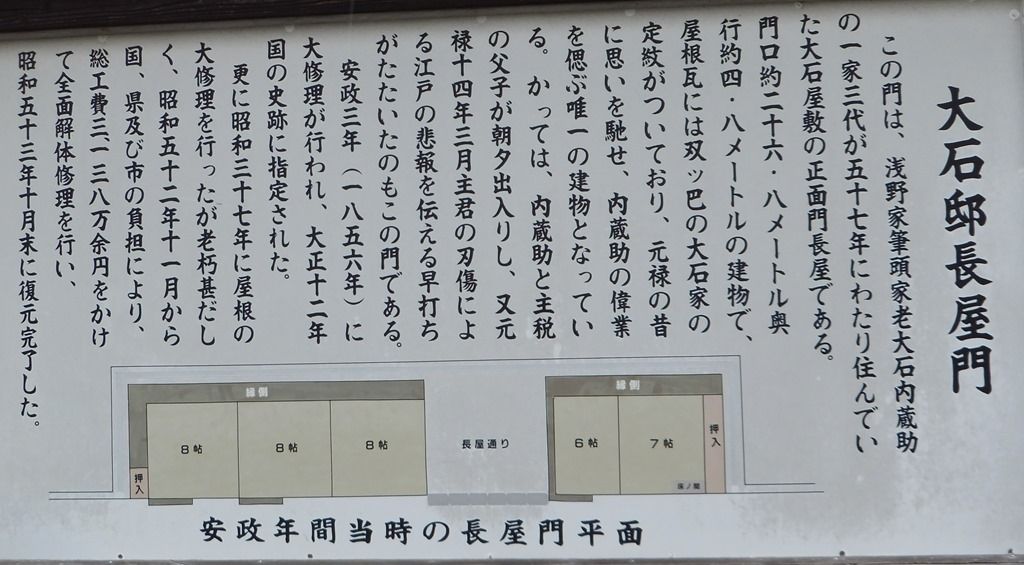 大石邸長屋門
この門は、浅野家筆頭家老大石内蔵助
の一家三代が五十七年にわたり住んでい
た大石屋敷の正面門長屋である。
門口約二十六・八メートル奥
行約四・八メートルの建物で、
屋根瓦には双ッ巴の大石家の
定紋がついており、元禄の昔
に思いを馳せ、内蔵助の偉業
を偲ぶ唯一の建物となってい
る。かっては、内蔵助と主税
の父子が朝夕出入りし、又元
禄十四年三月主君の刃傷によ
る江戸の悲報を伝える早打ち
がたたいたのもこの門である。
安政三年（一八五六年）に
大修理が行われ、大正十二年
国の史跡に指定された。
更に昭和三十七年に屋根の
大修理を行ったが老朽甚だし
く、昭和五十二年十一月から
国、県及び市の負担により、
総工費三、一三八万余円をかけ
て全面解体修理を行い、
昭和五十三年十月末に復元完了した。
縁側
8帖
8帖
8帖
押入
長屋通り
縁側
6帖
7帖
押入
床ノ間
安政年間当時の長屋門平面